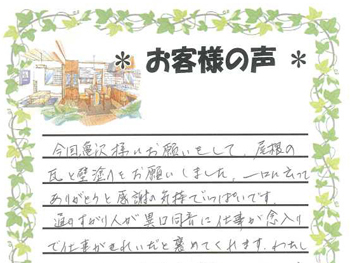 ＊ お客様の声 ＊
今回亀沢様にお願いをして、屋根の
瓦と壁塗りをお願いしました。一口に云って
ありがとうと感謝の気持でいっぱいです。
通りすがり人が異口同音に仕事が念入り
で仕事がきれいだと褒めてくれます。わたし